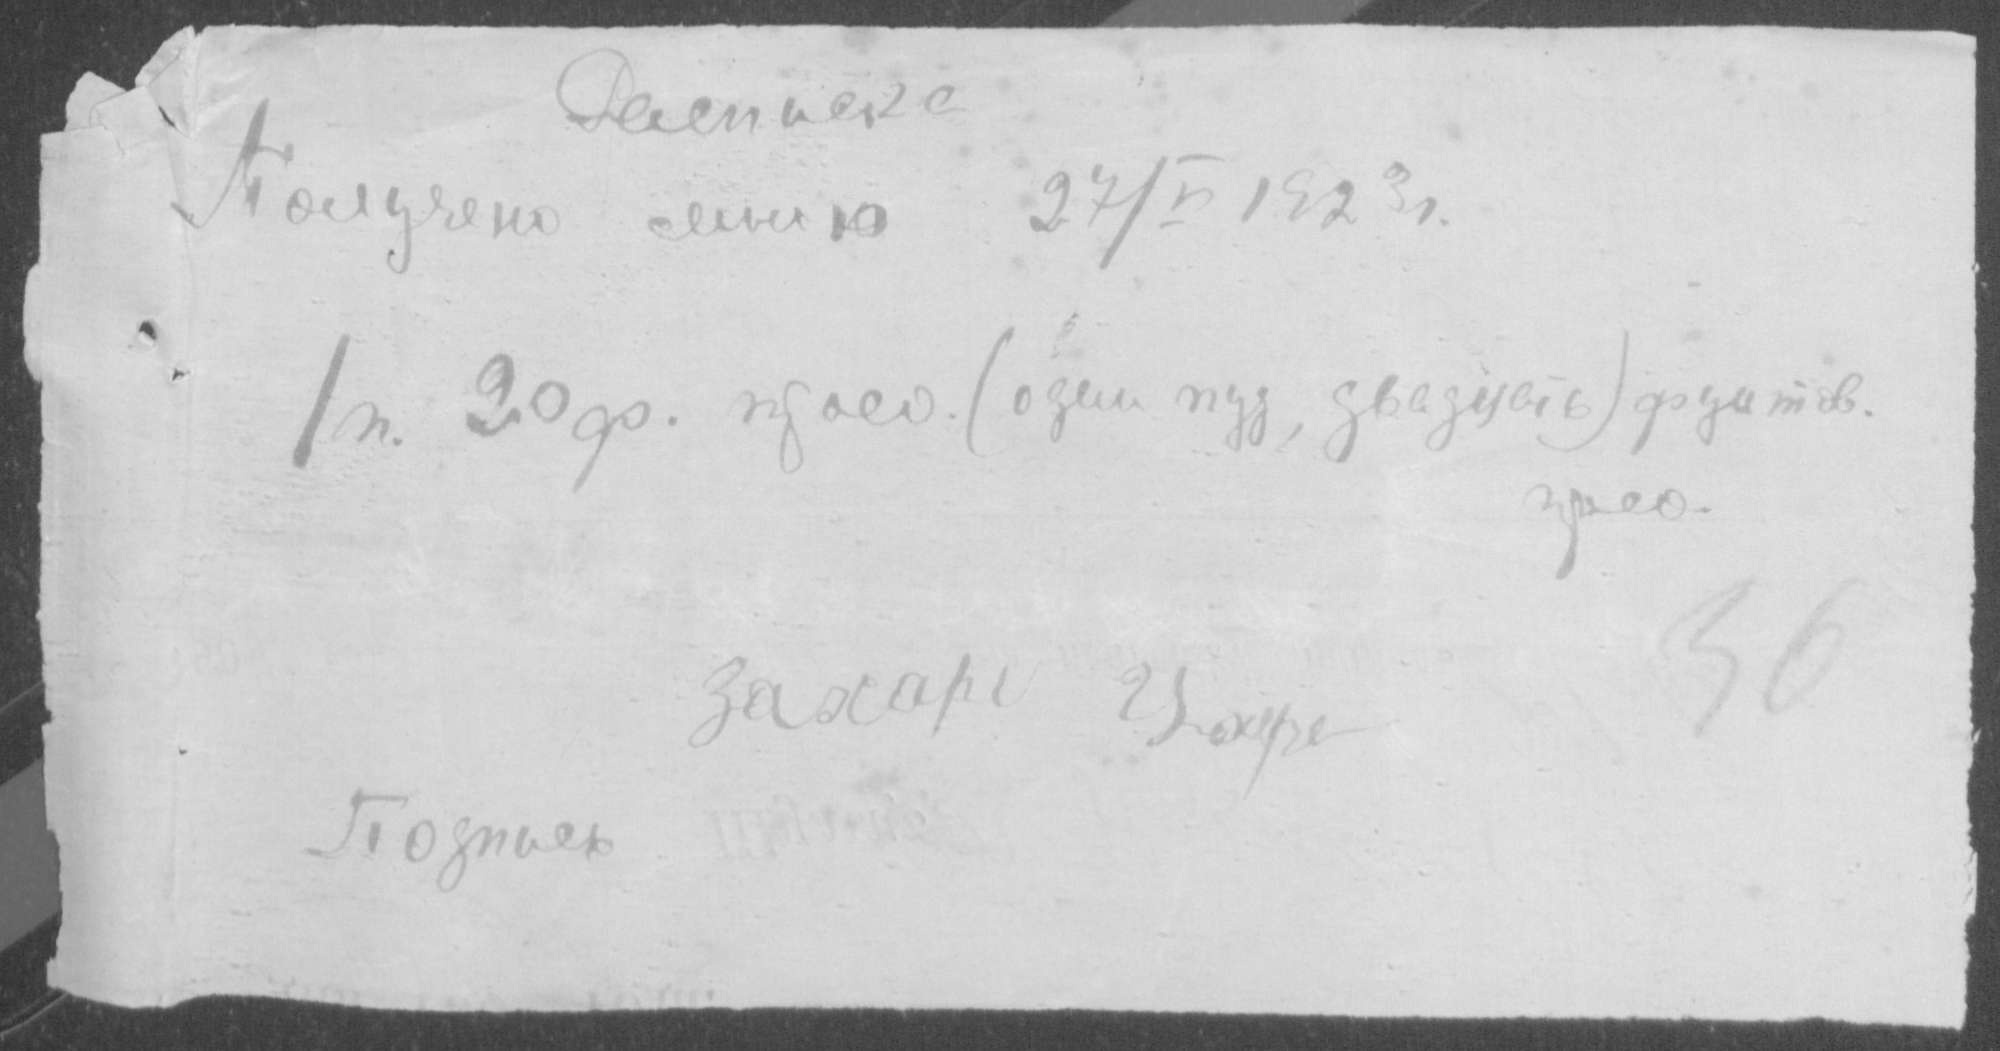 Расписка
Получено мною 27/II 1923 г.
1 п. 20 ф. просо. (один пуд, двадцать) фунтов.
просо.
36
Захарі
Подпись